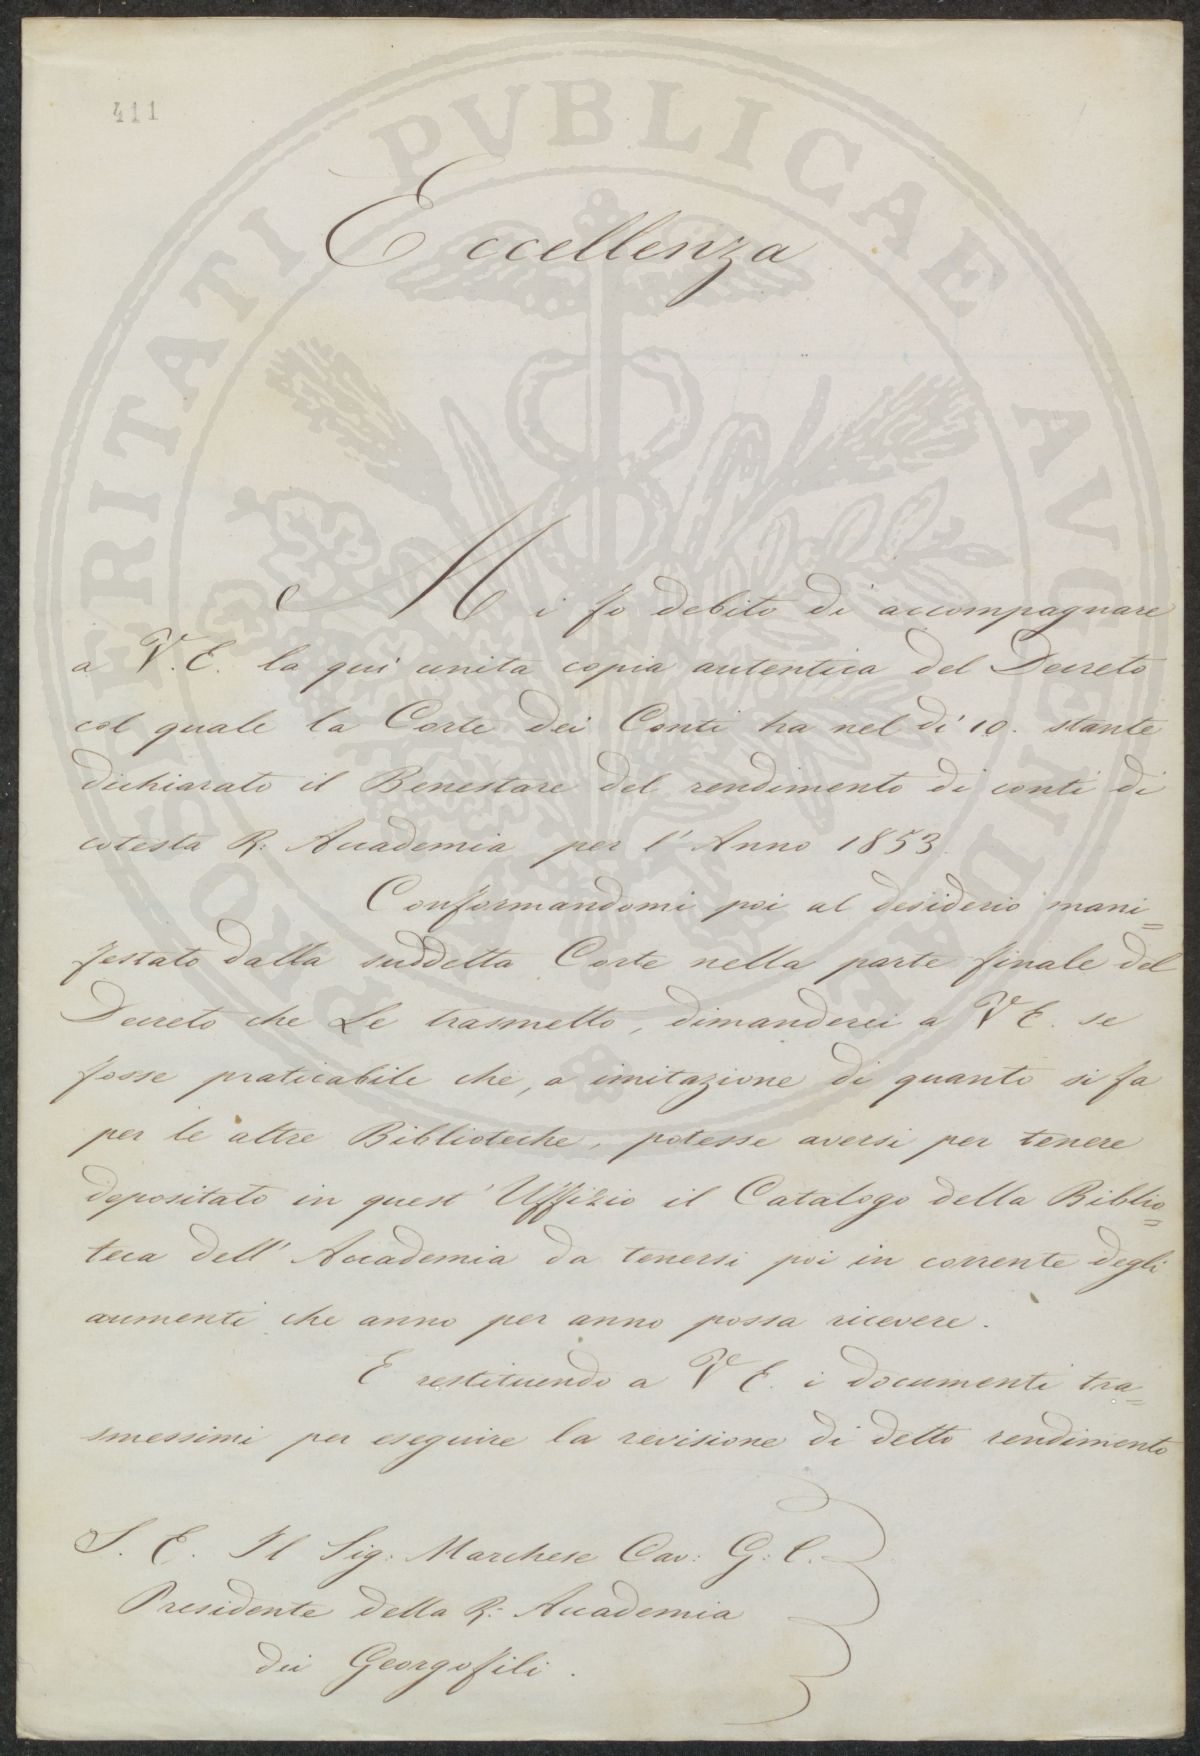 411
PROSPERITATI PUBLICAE AUGENDAE
Eccellenza
Mi fo debito di accompagnare
a V. E. la qui unita copia autentica del Decreto
col quale la Corte dei Conti ha nel dì 10. stante
dichiarato il Benestare del rendimento di conti di
cotesta R: Accademia per l'Anno 1853.
Conformandomi poi al desiderio mani=
festato dalla suddetta Corte nella parte finale del
Decreto che Le trasmetto, dimanderei a V E. se
fosse praticabile che, a imitazione di quanto si fa
per le altre Biblioteche, potesse aversi per tenere
depositato in quest'Uffizio il Catalogo della Biblio=
teca dell'Accademia da tenersi poi in corrente degli
aumenti che anno per anno possa ricevere.
E restituendo a V E. i documenti tra=
smessimi per eseguire la revisione di detto rendimento
S. E. Il Sig: Marchese Cav: G: C.
Presidente della R: Accademia
dei Georgofili.